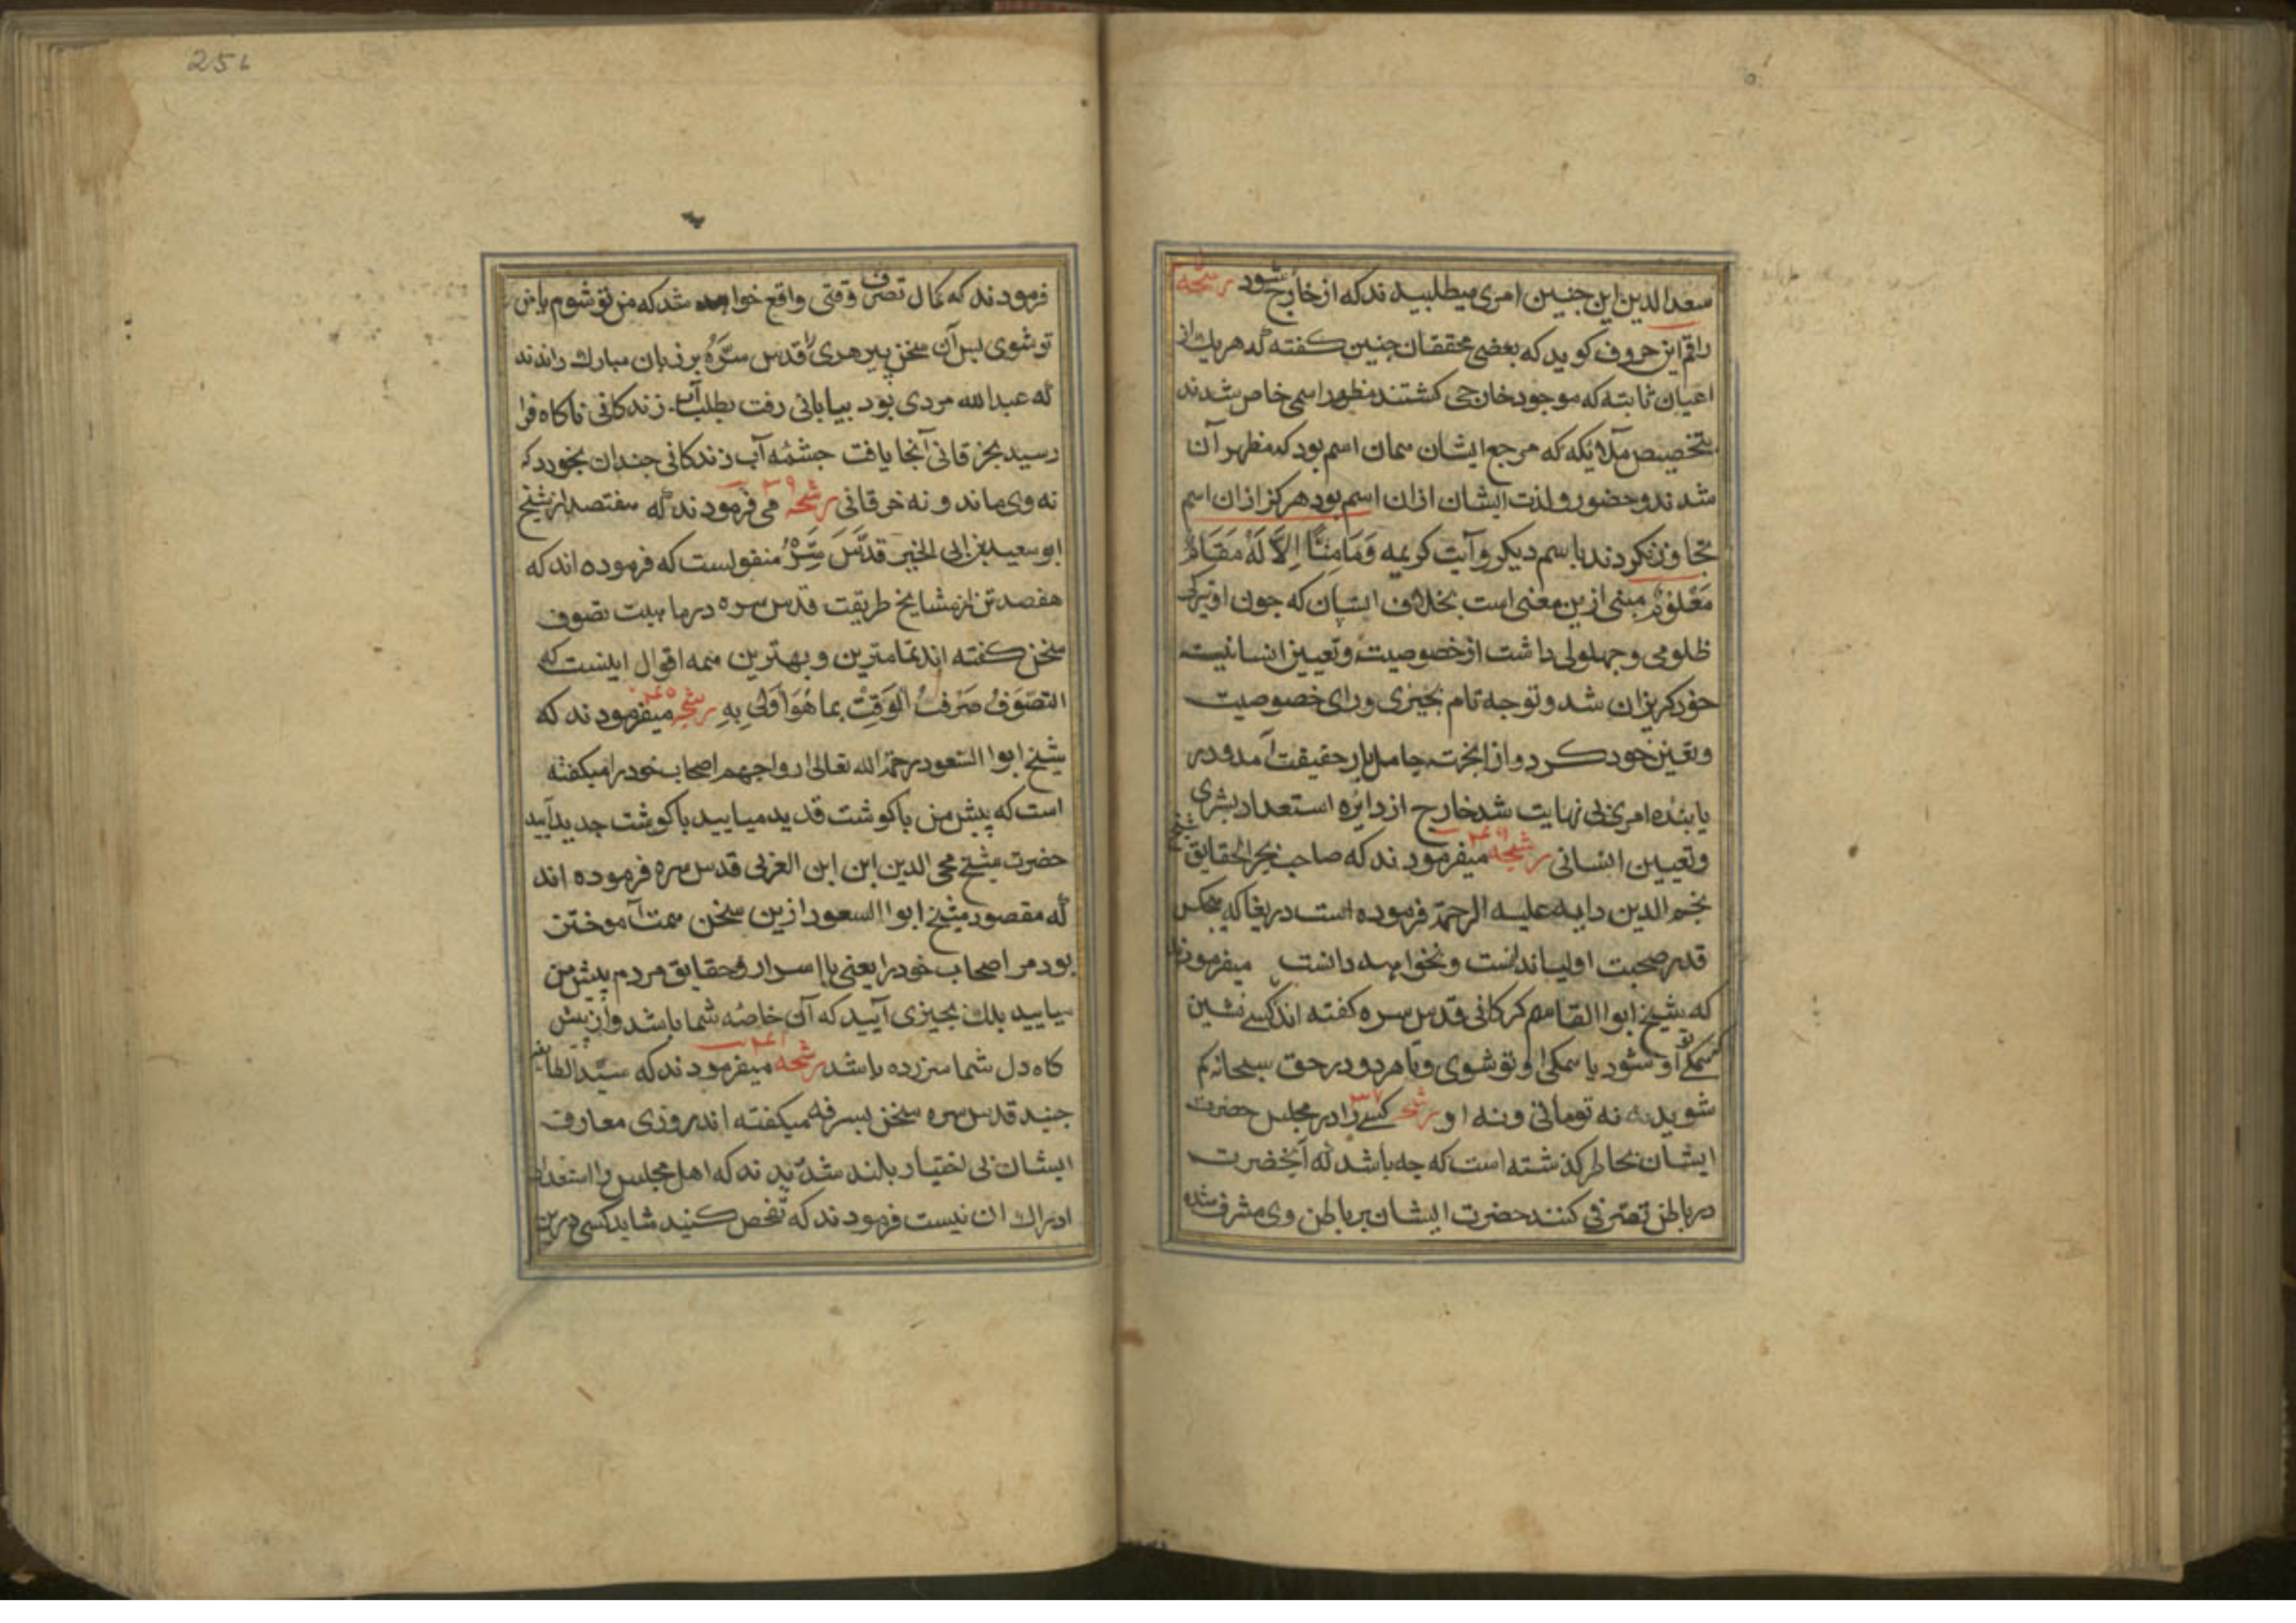 سعد الدین این جنین امری میطلبیده اند که از خارج شود رشحه
راقم این حروف کوید که بعضی محققان جنین کفته که هریك از
اعیان ثابته که موجود خارجی کشتند مظهر اسمی خاص شدند
بتخصیص ملایکه که مرجع ایشان همان اسم بود که مظهر آن
شدند و حضور و لذت ایشان ازان اسم بود هرکز ازان اسم
تجاوز نکردند باسم دیکر و آیت کریمه وَمَا مِنَّا اِلاَّ لَهُ مَقَامٌ
مَعْلُومٌ مبنی ازین معنی است بخلاف انسان که جون او
ظلومی و جهولی داشت از خصوصیت و تعیین انسانیت
خود کریزان شد و توجه تام بجیزی ورای خصوصیت
و تعین خود کرد و ازانجهت حامل بار حقیقت آمد و در
یابنده امری بی نهایت شد خارج از دایره استعداد بشری
و تعیین انسانی رشحه میفرمودند که صاحب بحر الحقایق شیخ
نجم الدین دایه علیه الرحمة فرموده است دریغا که هیجکس
قدر صحبت اولیا ندانست و نخواهد دانست میفرمودند
که شیخ ابوا القاسم کرکانی قدس سره کفته اند کسی نشین
همکی او تو شود یا همکی او تو شوی ویا هر دو در حق سبحانه کم
شوید نه تومانی و نه او رشحه ۳۷ کسی را در مجلس حضرت
ایشان بخاطر کذشته است که جه باشد که آنحضرت
در باطن تصرفی کنند حضرت ایشان بر باطن وی مشرف شده
251
فرمودند که کمال تصرف وقتی واقع خواهد شد که من تو شوم یا من
تو شوی بس آن سخن پیر هری را قدس سَرَّهُ بر زبان مبارك راندند
که عبدالله مردی بود بیابانی رفت بطلب آب زندکانی ناکاه فرا
رسید بخرقانی آنجا یافت جشمهٔ آب زندکانی جندان بخورد که
نه وی ماند و نه خرقانی رشحه می فرمودند که هفتصد از شیخ
ابو سعید بن ابی الخیر قدَّسَ سَِّرُه منقولست که فرموده اند که
هفصد تن از مشایخ طریقت قدس سره در ماهیت تصوف
سخن کفته اند تمامترین و بهترین همه اقوال اینست که
التصَوَفُ صَرْفُ الوَقتِ بما هُوَ اَولَی بِهِ رشحه میفرمودند که
شیخ ابوا السعود رحمة الله تعالی ارواحهم اصحاب خود را میکفته
است که پیش من با کوشت قدید میایید با کوشت جدید آیید
حضرت شیخ محی الدین ابن ابن العربی قدس سره فرموده اند
که مقصود شیخ ابوا السعود ازین سخن همت آموختن
بود مر اصحاب خود را یعنی با اسرار و حقایق مردم پیش من
میایید بلك بجیزی آیید که آن خاصه شما باشد و از پیش
کاه دل شما سر زده باشد رشحه میفرمودند که سیّد الطایفه
جنید قدس سره سخن بسرفه میکفته اند روزی معارف
ایشان بی اختیار بلند شد دیدند که اهل مجلس را استعداد
ادراك ان نیست فرمودند که تفحص کنید شاید کسی درین